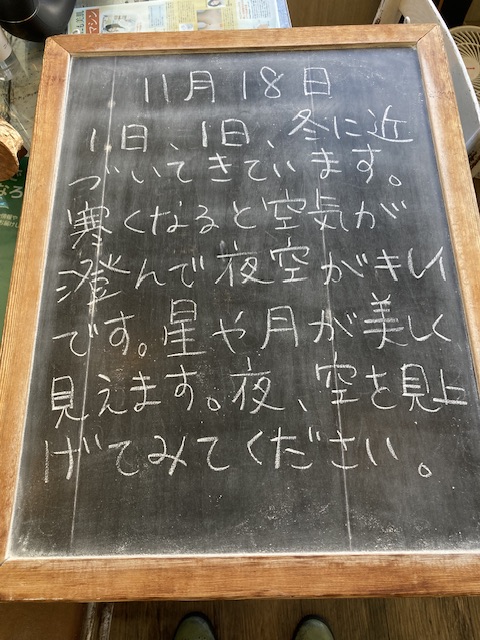 11月18日
1日、1日、冬に近
づいてきています。
寒くなると空気が
澄んで夜空がキレイ
です。星や月が美しく
見えます。夜、空を見上
げてみてください。
マシン